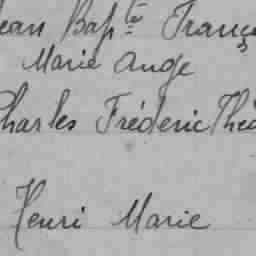 Jean Bapte Franç
Marie Ange
Charles Fréderic Théo
Henri Marie